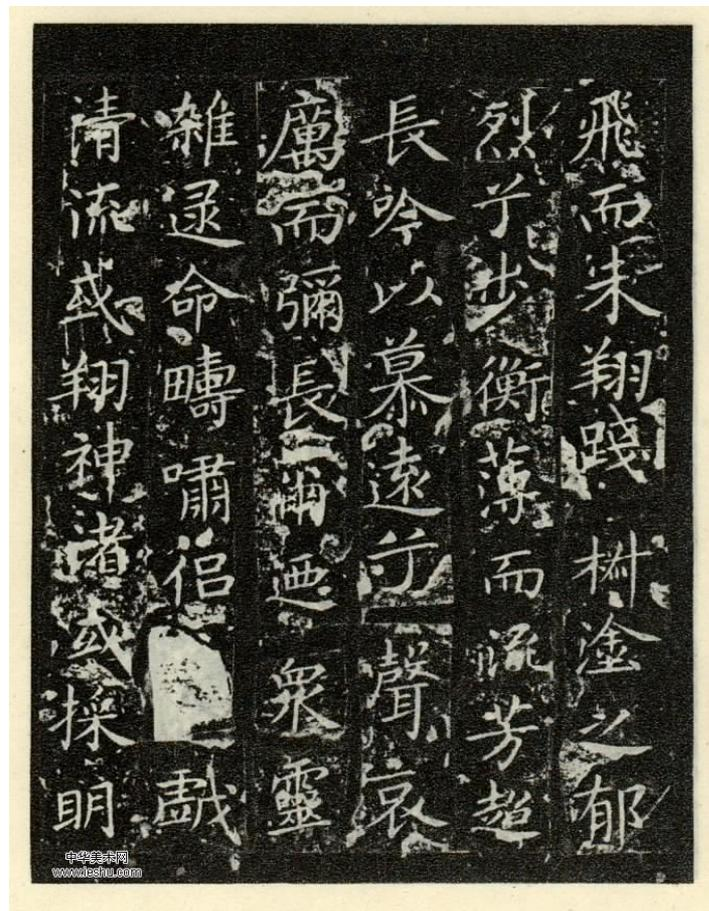 飛而未翔踐椒塗之郁
烈兮步衡薄而流芳超
長吟以慕遠兮聲哀
厲而彌長爾迺衆靈
雜遝命疇嘯侶戲
清流或翔神渚或採明
中华美术网
www.ieshu.com